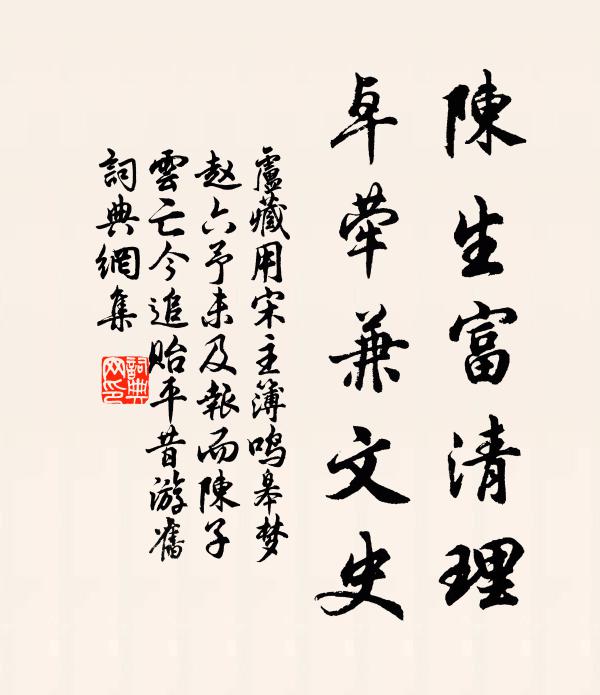 陳生富清理
卓犖兼文史
盧藏用宋主簿鳴皋梦
赵六予未及報而陳子
雲亡今追贻平昔游舊
詞典網集
詞典
网印